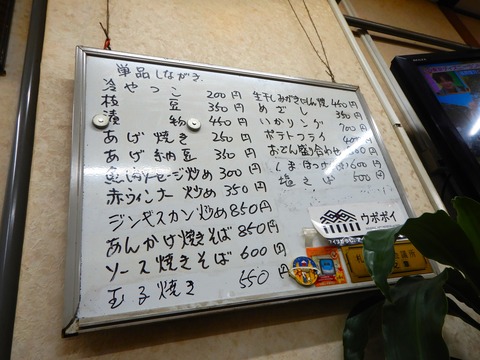 単品しながき
冷やっこ 200円
枝豆 350円
450円
あげ焼き 250円
あげ納豆 350円
魚肉ソーセージ炒め 300円
赤ウィンナー炒め 350円
ジンギスカン炒め 850円
あんかけ焼きそば 850円
ソース焼きそば 600円
玉子焼き 550円
生干しみがきにしん焼 450円
めざし 350円
いかリング 700円
ポテトフライ 400円
おでん盛り合わせ
しまほっけ 600
塩さば 500円
ウポポイ